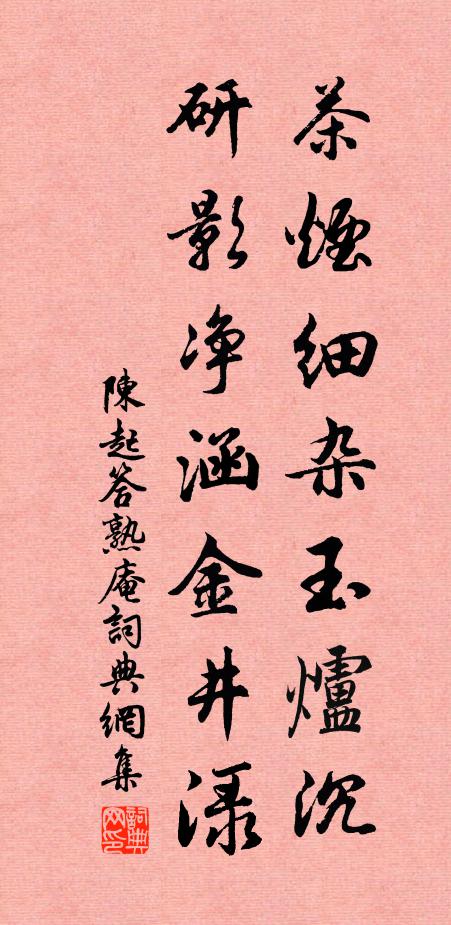 茶煙細杂玉爐沉
研影净涵金井渌
陳起答熟庵詞典網集
詞典网印